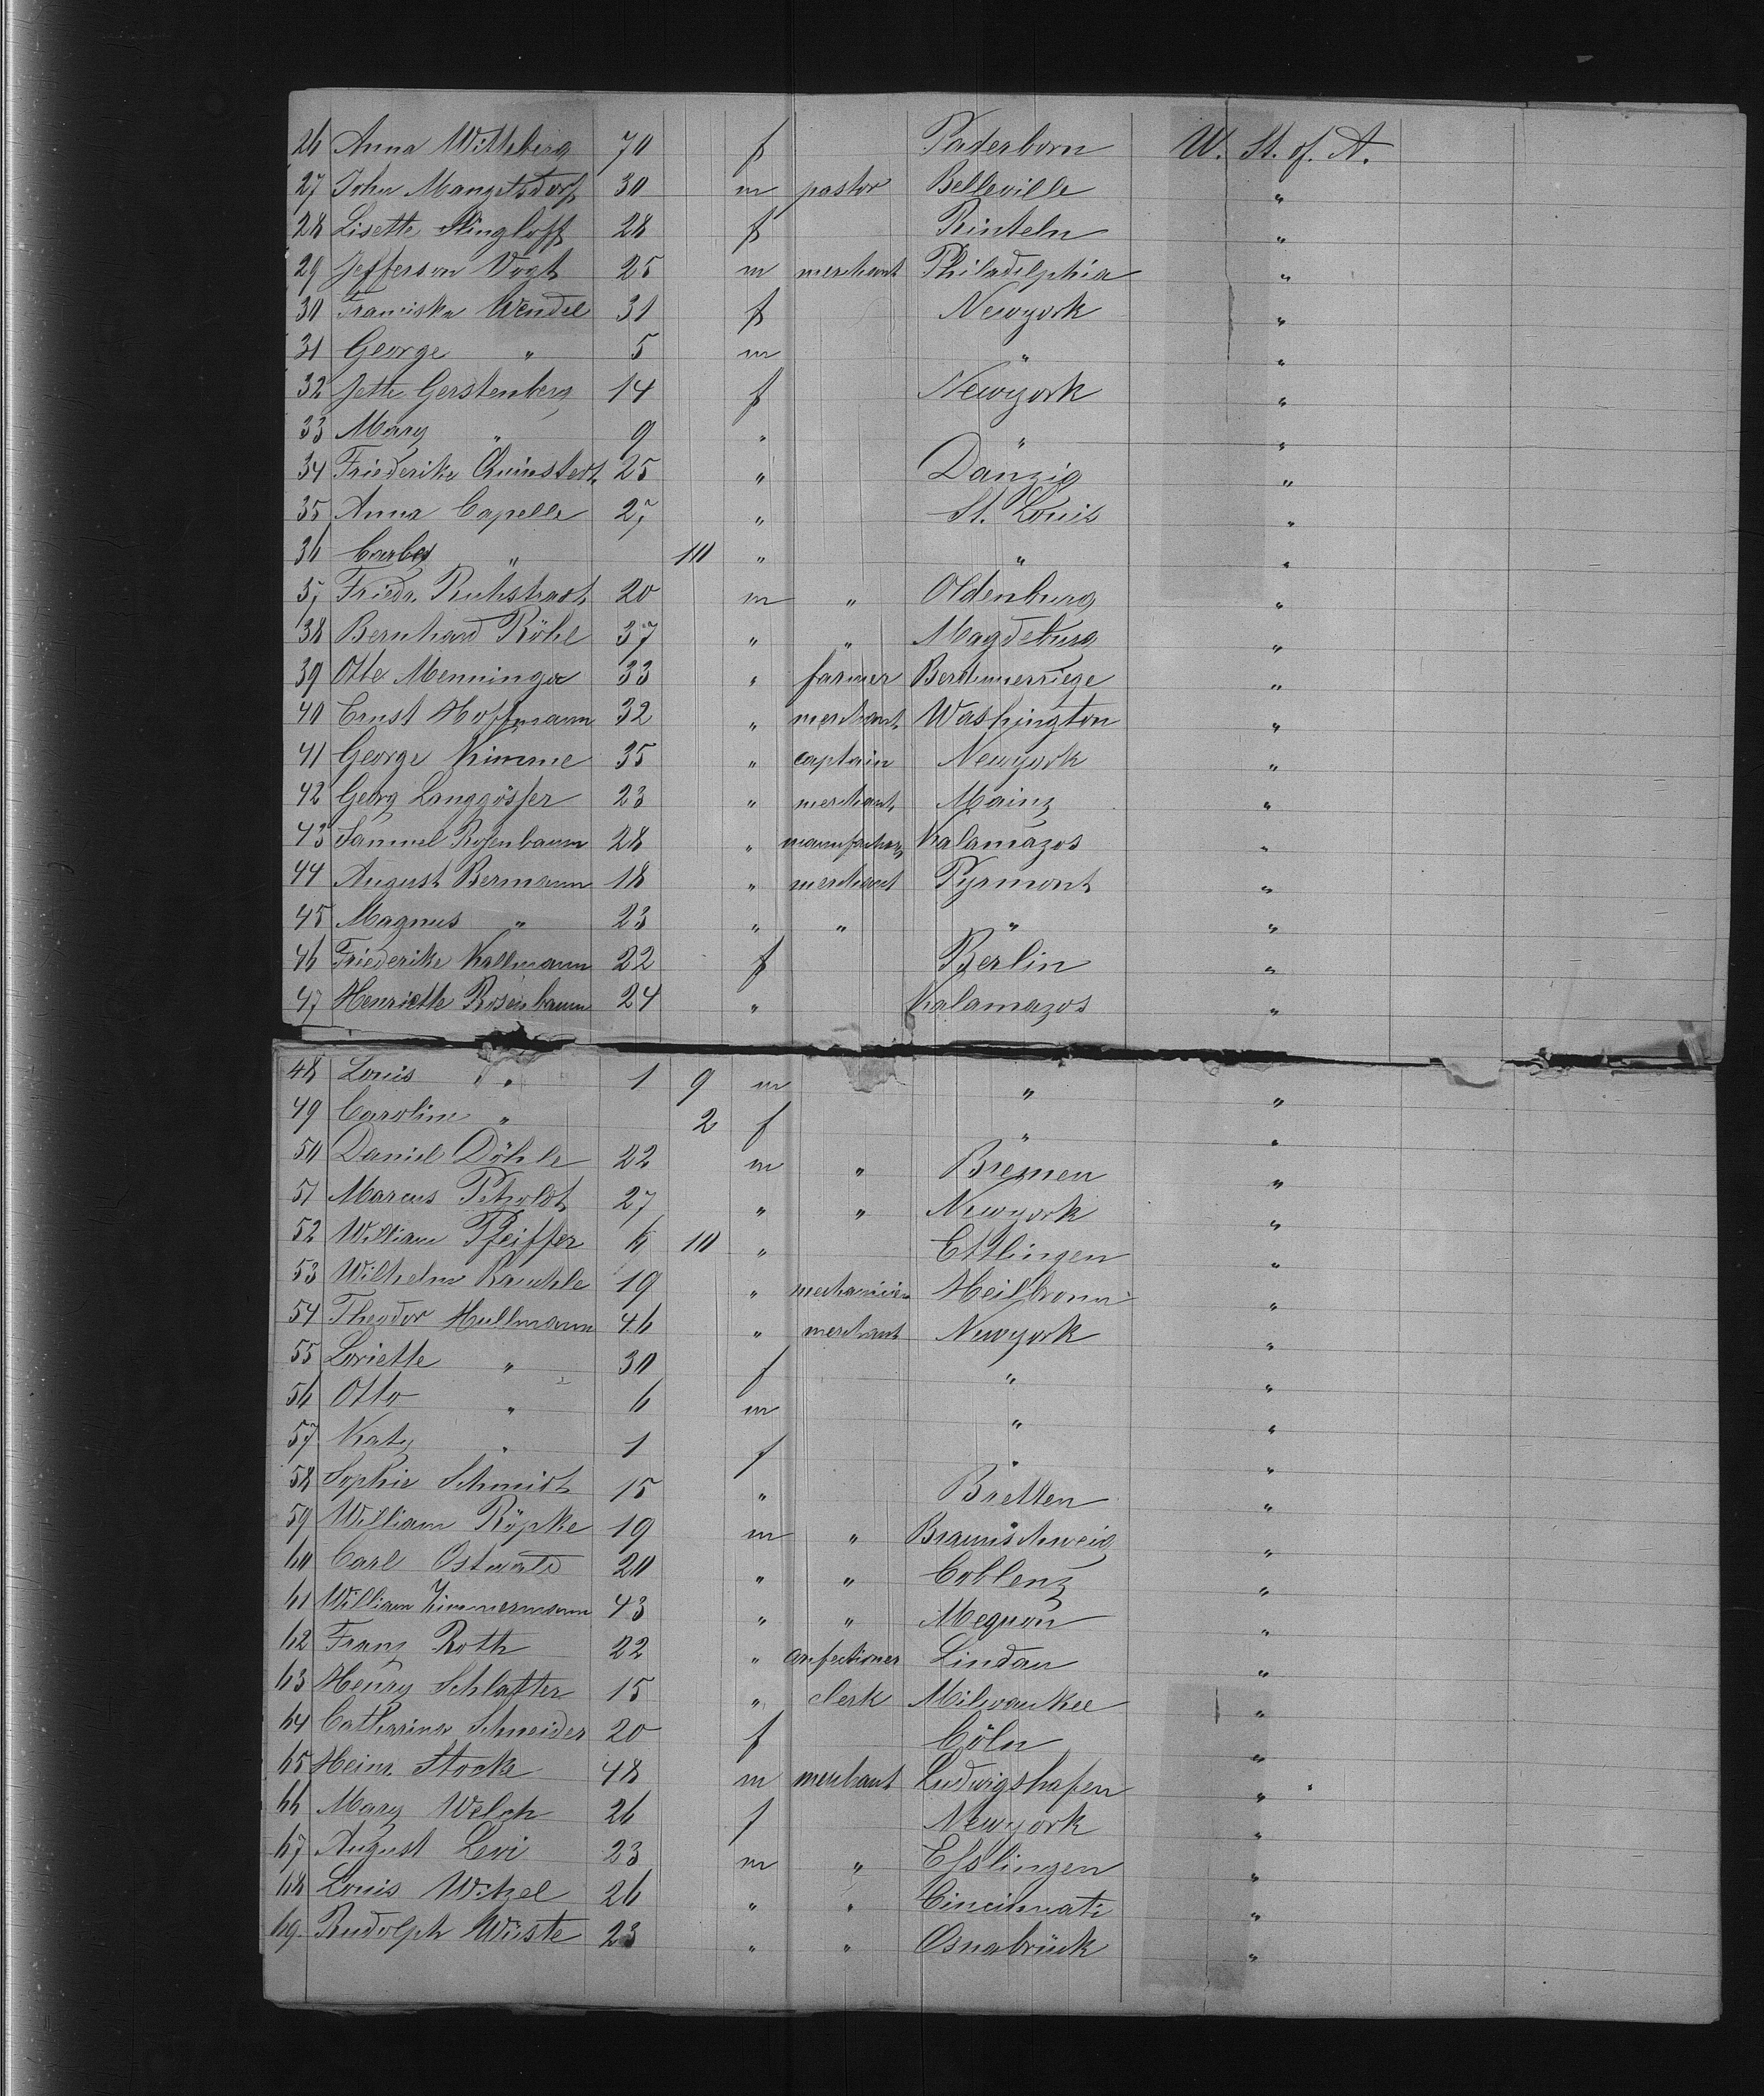 26 Anna Witteberg 70 f Paderborn U. St. of. A.
27 John Mangelsdorf 30 m pastor Belleville "
28 Lisette Slingloff 28 f Rinteln "
29 Jefferson Vogt 25 m merchant Philadelphia "
30 Franciska Wendel 31 f Newyork "
31 George " 5 m " "
32 Jette Gerstenberg 14 f Newyork "
33 Mary " 9 " " "
34 Friederike 25 " Danzig "
35 Anna Capelle 27 " St. Louis "
36 " 10 " " "
37 Friedr. Ruhstradt 20 m " Oldenburg "
38 Bernhard Röhl 37 " " Magdeburg "
39 Otto Menninga 33 " farmer "
40 Ernst Hoffmann 32 " merchant Washington "
41 George Kimme 35 " captain Newyork "
42 Georg Langgösser 23 " merchant Mainz "
43 Samuel Rosenbaum 28 " Kalamazoo "
44 August Bermann 18 " merchant Pyrmont "
45 Magnus " 23 " " " "
46 Friederike Kallmann 22 f Berlin "
47 Henriette Rosenbaum 24 " Kalamazoo "
48 Louis " 1 9 m " "
49 Caroline " 2 f " "
50 Daniel Döhle 22 m " Bremen "
51 Marcus Petholdt 27 " " Newyork "
52 William Pfeiffer 4 10 " Ettlingen "
53 Wilhelm 19 " mechanician Heilbronn "
54 Theodor Hullmann 46 " merchant Newyork "
55 Loriette " 30 f " "
56 Otto " 6 m " "
57 Katy " 1 f " "
58 Sophie Schmidt 15 " Bretten "
59 William Röpke 19 m " Braunschweig "
60 Carl Ostwald 20 " " Coblenz "
61 William Zimmermann 43 " " Mequon "
62 Franz Roth 22 " confectioner Lindau "
63 Henry Schlatter 15 " clerk Milwaukee "
64 Catharina Schneider 20 f Cöln "
65 Heinr. Stocke 48 m merchant Ludwigshafen "
66 Mary Welch 26 f Newyork "
67 August Levi 23 m " Esslingen "
68 Louis Witzel 26 " " Cincinnati "
69. Rudolph Wüste 23 " " Osnabrück "